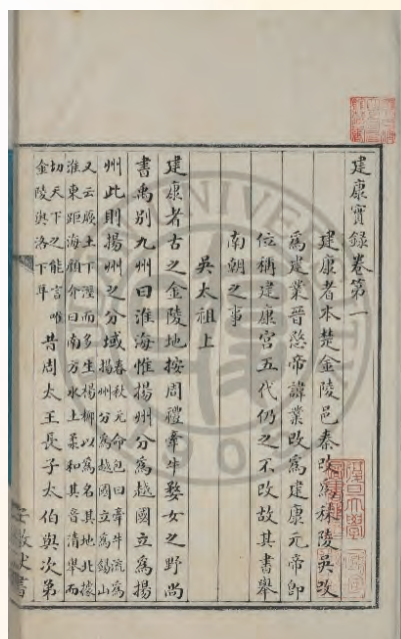 建康實録卷第一
建康者本楚金陵邑秦改爲秣陵吳改
爲建業晉愍帝諱業改爲建康元帝即
位稱建康宮五代仍之不改故其書舉
南朝之事
吳太祖上
建康者古之金陵地按周禮牽牛婺女之野尚
書禹别九州曰淮海惟揚州分爲越國立爲揚
州此則揚州之分域春秋元命包曰牽牛流爲
揚州分爲越國立爲揚山
又云厥土下溼而多生楊柳以爲名其地北據
淮東距海顔介曰南方水土柔和其音清舉而
切天下之能言唯
金陵與洛下耳昔周太王長子太伯與次第
復旦大學